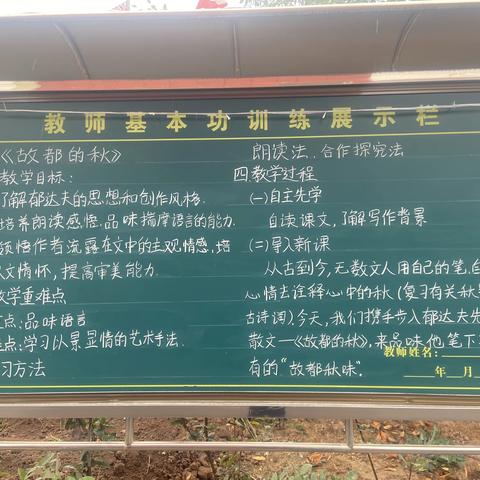 教师基本功训练展示栏
《故都的秋》
教学目标：
了解郁达夫的思想和创作风格.
培养朗读感悟,品味揣摩语言的能力.
领悟作者流露在文中的主观情感,培
人文情怀,提高审美能力.
教学重难点
点:品味语言
点:学习以景显情的艺术手法.
习方法
朗读法、合作探究法
四.教学过程
(一)自主先学
自读课文,了解写作背景
(二)导入新课
从古到今,无数文人用自己的笔,自
心情去诠释心中的秋(复习有关秋
古诗词)今天,我们携手步入郁达夫先
散文—《故都的秋》,来品味他笔下
有的“故都秋味”.
教师姓名：
年 月